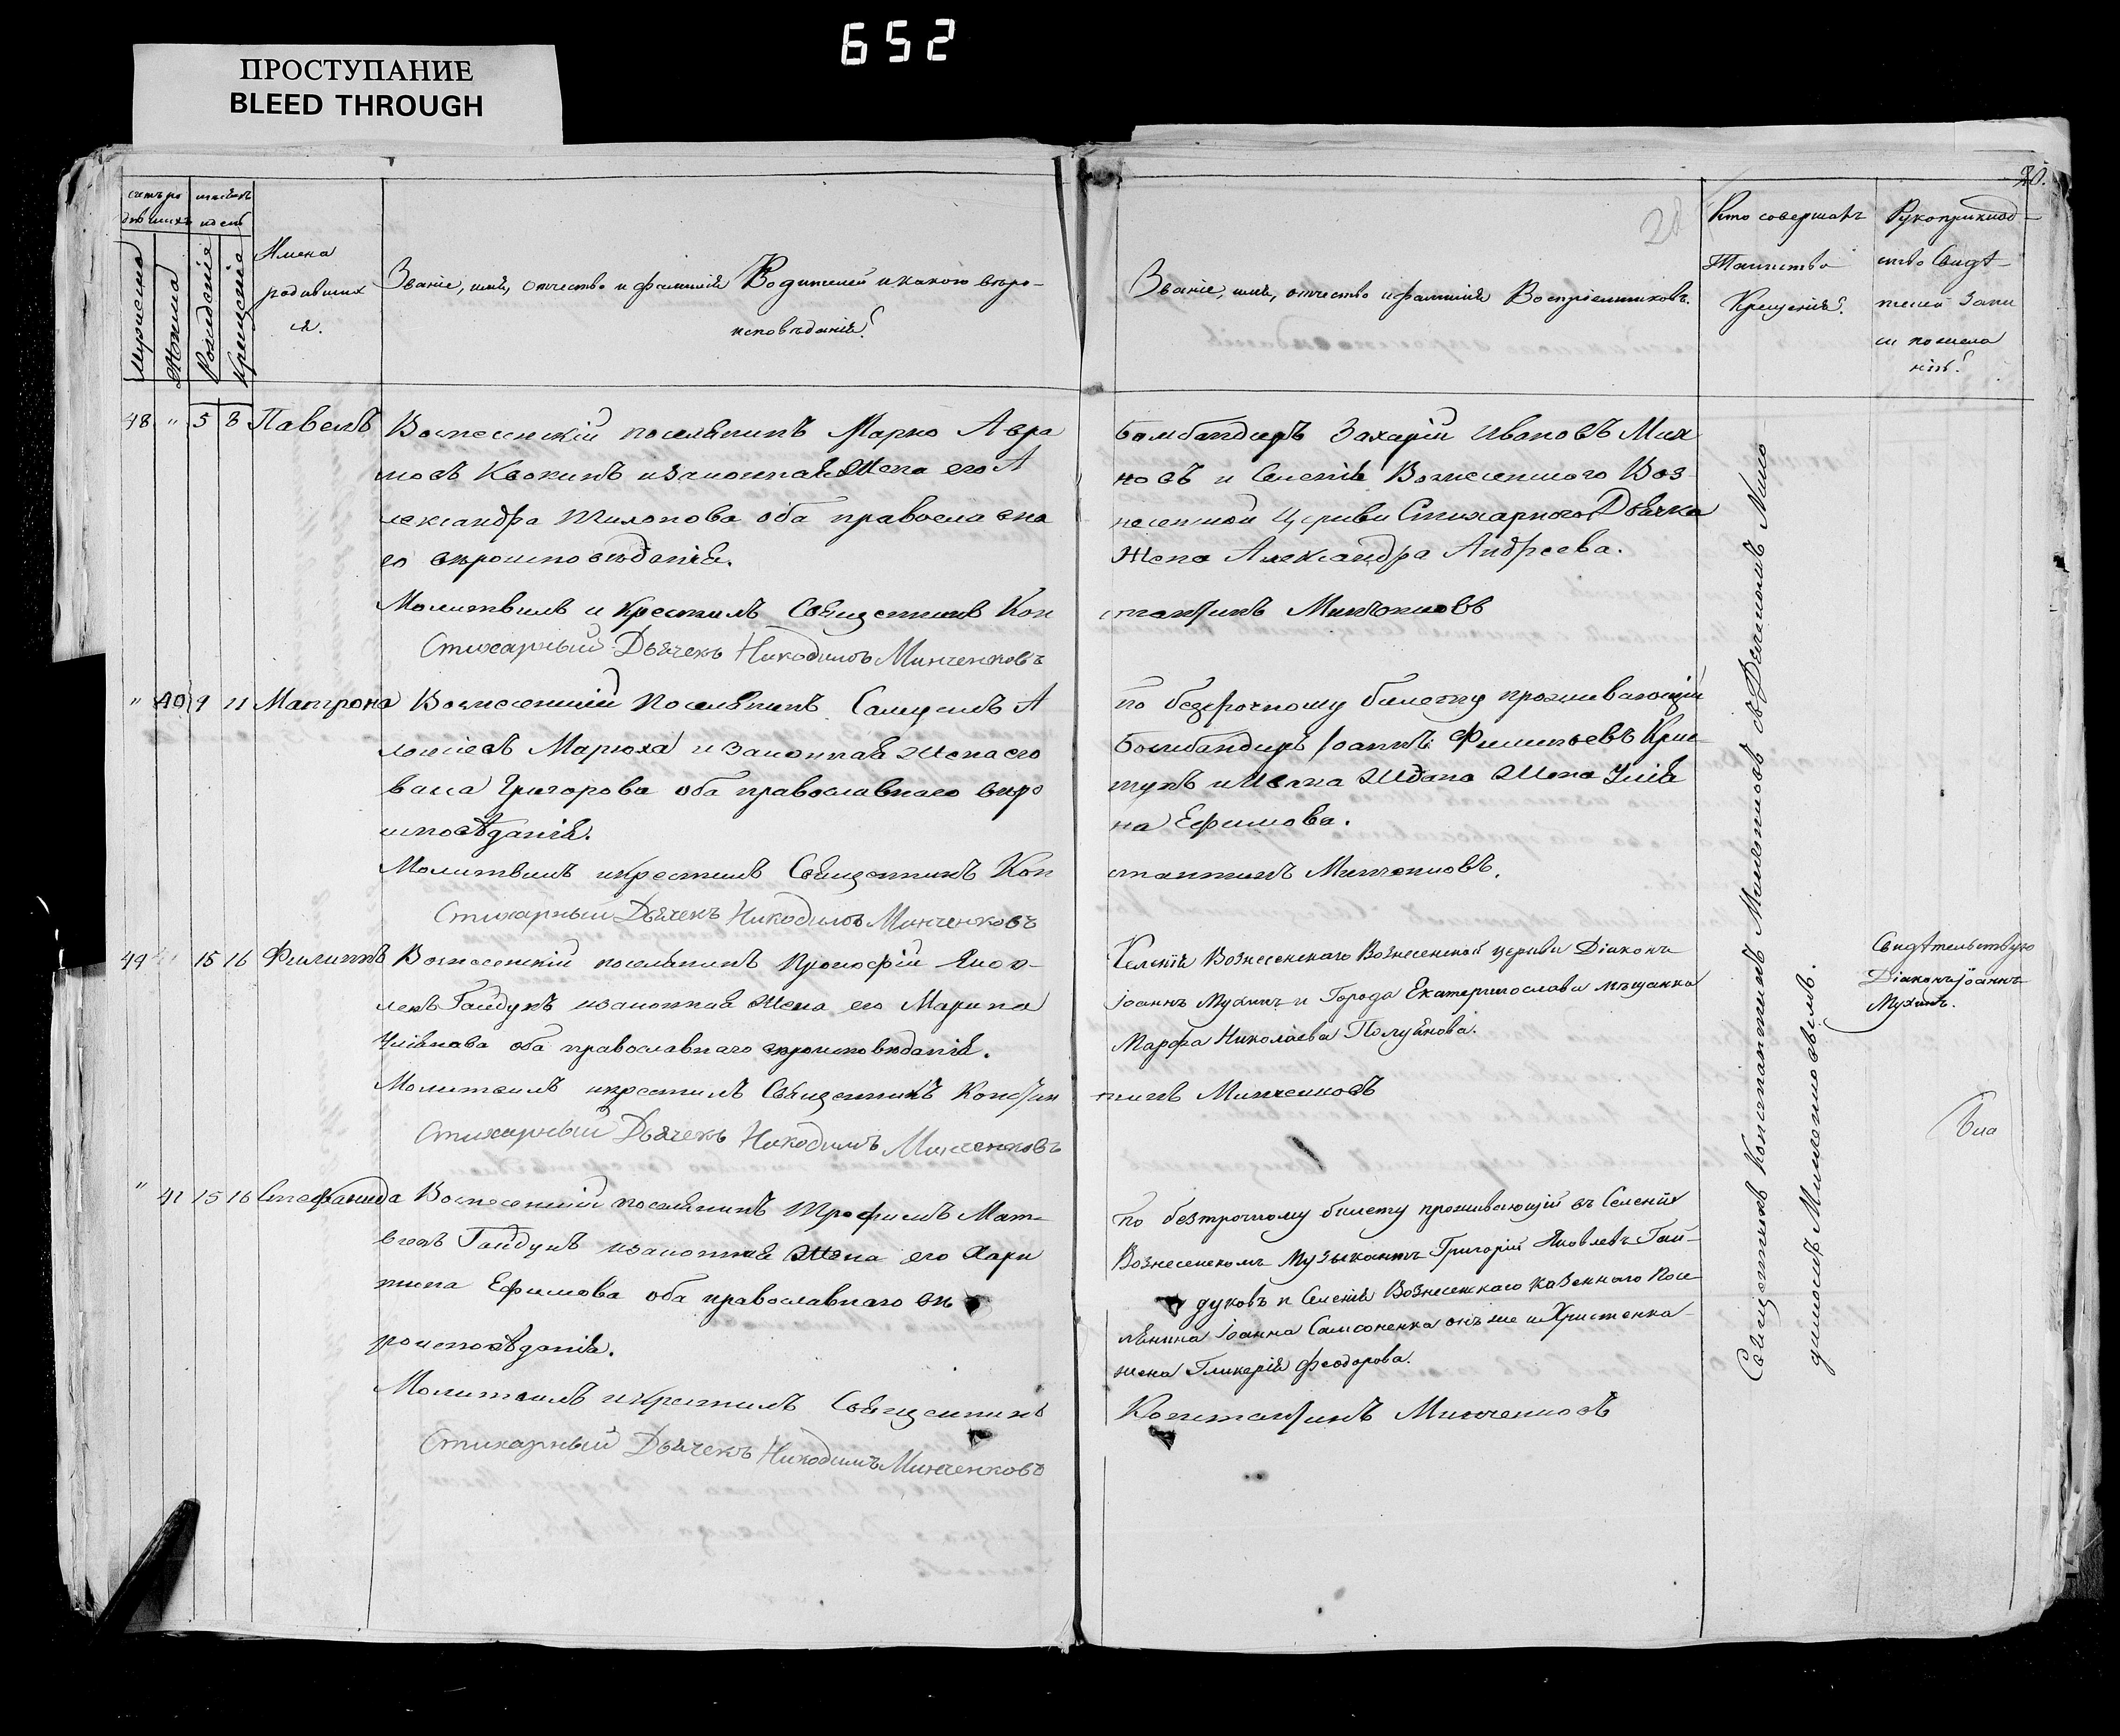 652
ПРОСТУПАНИЕ
BLEED THROUGH
20.
20
Мужеска
Женска
Рожденіе
Крещеніе
Имена
родивших
ся.
Званіе, имя, отчество и фамилія Родителей и какого вѣро-
исповѣданія?
Званіе, имя, отчество и фамилія Воспріемниковъ.
Кто совершалъ
Таинство
Крещенія?
Рукоприклад-
ство Свидѣ-
телей запи
си по жела
нію?
48 " 5 8 Павелъ
Вознесенскій поселянинъ Марко Авра
мовъ Квокинъ и законная Жена его А
лександра оба православна
го вѣроисповѣданія.
Молитвилъ и крестилъ Священникъ Кон
Стихарный Дьячекъ Никодимъ Минченковъ
Бомбандиръ Захарій Ивановъ Мих
новъ и Селенія Вознесенского Воз-
несенской Церкви Стихарного Дьячка
Жена Александра Андреева.
стантинъ Минченковъ
" 40 9 11 Матрона
Вознесенскій Поселянинъ Самуилъ А
Марюха и Законная Жена его
Григорова оба православнаго вѣро
исповѣданія.
Молитвилъ и крестилъ Священникъ Кон
Стихарный Дьячекъ Никодимъ Минченковъ
по безсрочному билету проживающій
Бомбандиръ Іоаннъ Филиповъ
Жена Улія
на Ефимова.
стантинъ Минченковъ.
49 15 16 Филиппъ
Вознесенскій поселянинъ Прокофій Яков-
левъ Гайдукъ и законная Жена его Марина
Уліянова оба православнаго вѣроисповѣданія.
Молитвилъ и крестилъ Священникъ Констан
Стихарный Дьячекъ Никодимъ Минченковъ
Селенія Вознесенскаго Вознесенской церкви Діаконъ
Іоаннъ Мухинъ и Города Екатеринослава мѣщанка
Марфа Николаева Полуянова.
тинъ Минченковъ
Свидѣтельствую
Діаконъ Іоаннъ
Мухинъ.
" 41 15 16 Стефанида
Вознесенскій поселянинъ Трофимъ Мат-
вѣевъ Гайдукъ и законная Жена его Хари
тина Ефимова оба православнаго вѣ
роисповѣданія.
Молитвилъ и крестилъ Священникъ
Стихарный Дьячекъ Никодимъ Минченковъ
по безсрочному билету проживающій въ Селеніи
Вознесенскомъ Музыкантъ Григорій Яковлевъ Гай-
дуковъ и Селенія Вознесенскаго казеннаго посе
лянина Іоанна Самсоненка онъ же и Христенка
жена Гликерія Феодорова.
Константинъ Минченковъ
Священникъ Константинъ Минченковъ съ Дьячкомъ Нико
димомъ Минченковымъ.